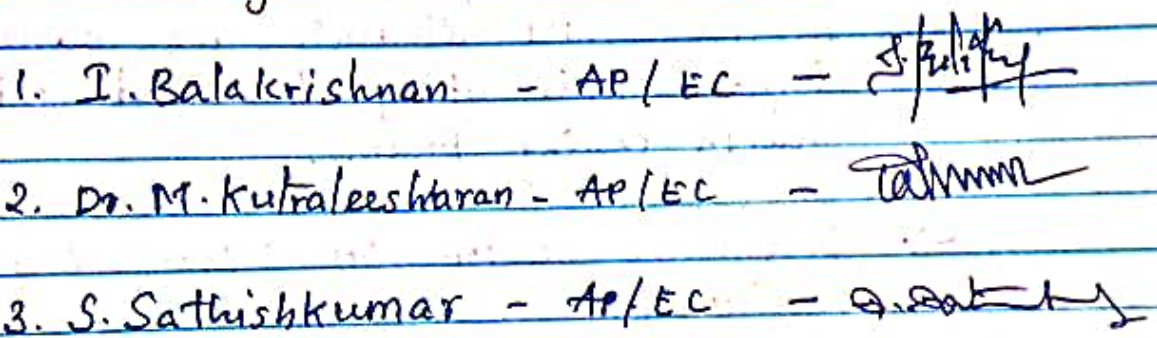 1. I. Balakrishnan - AP / EC -
2. Dr. M. Kutraleeshwaran - AP / EC -
3. S. Sathishkumar - AP / EC -